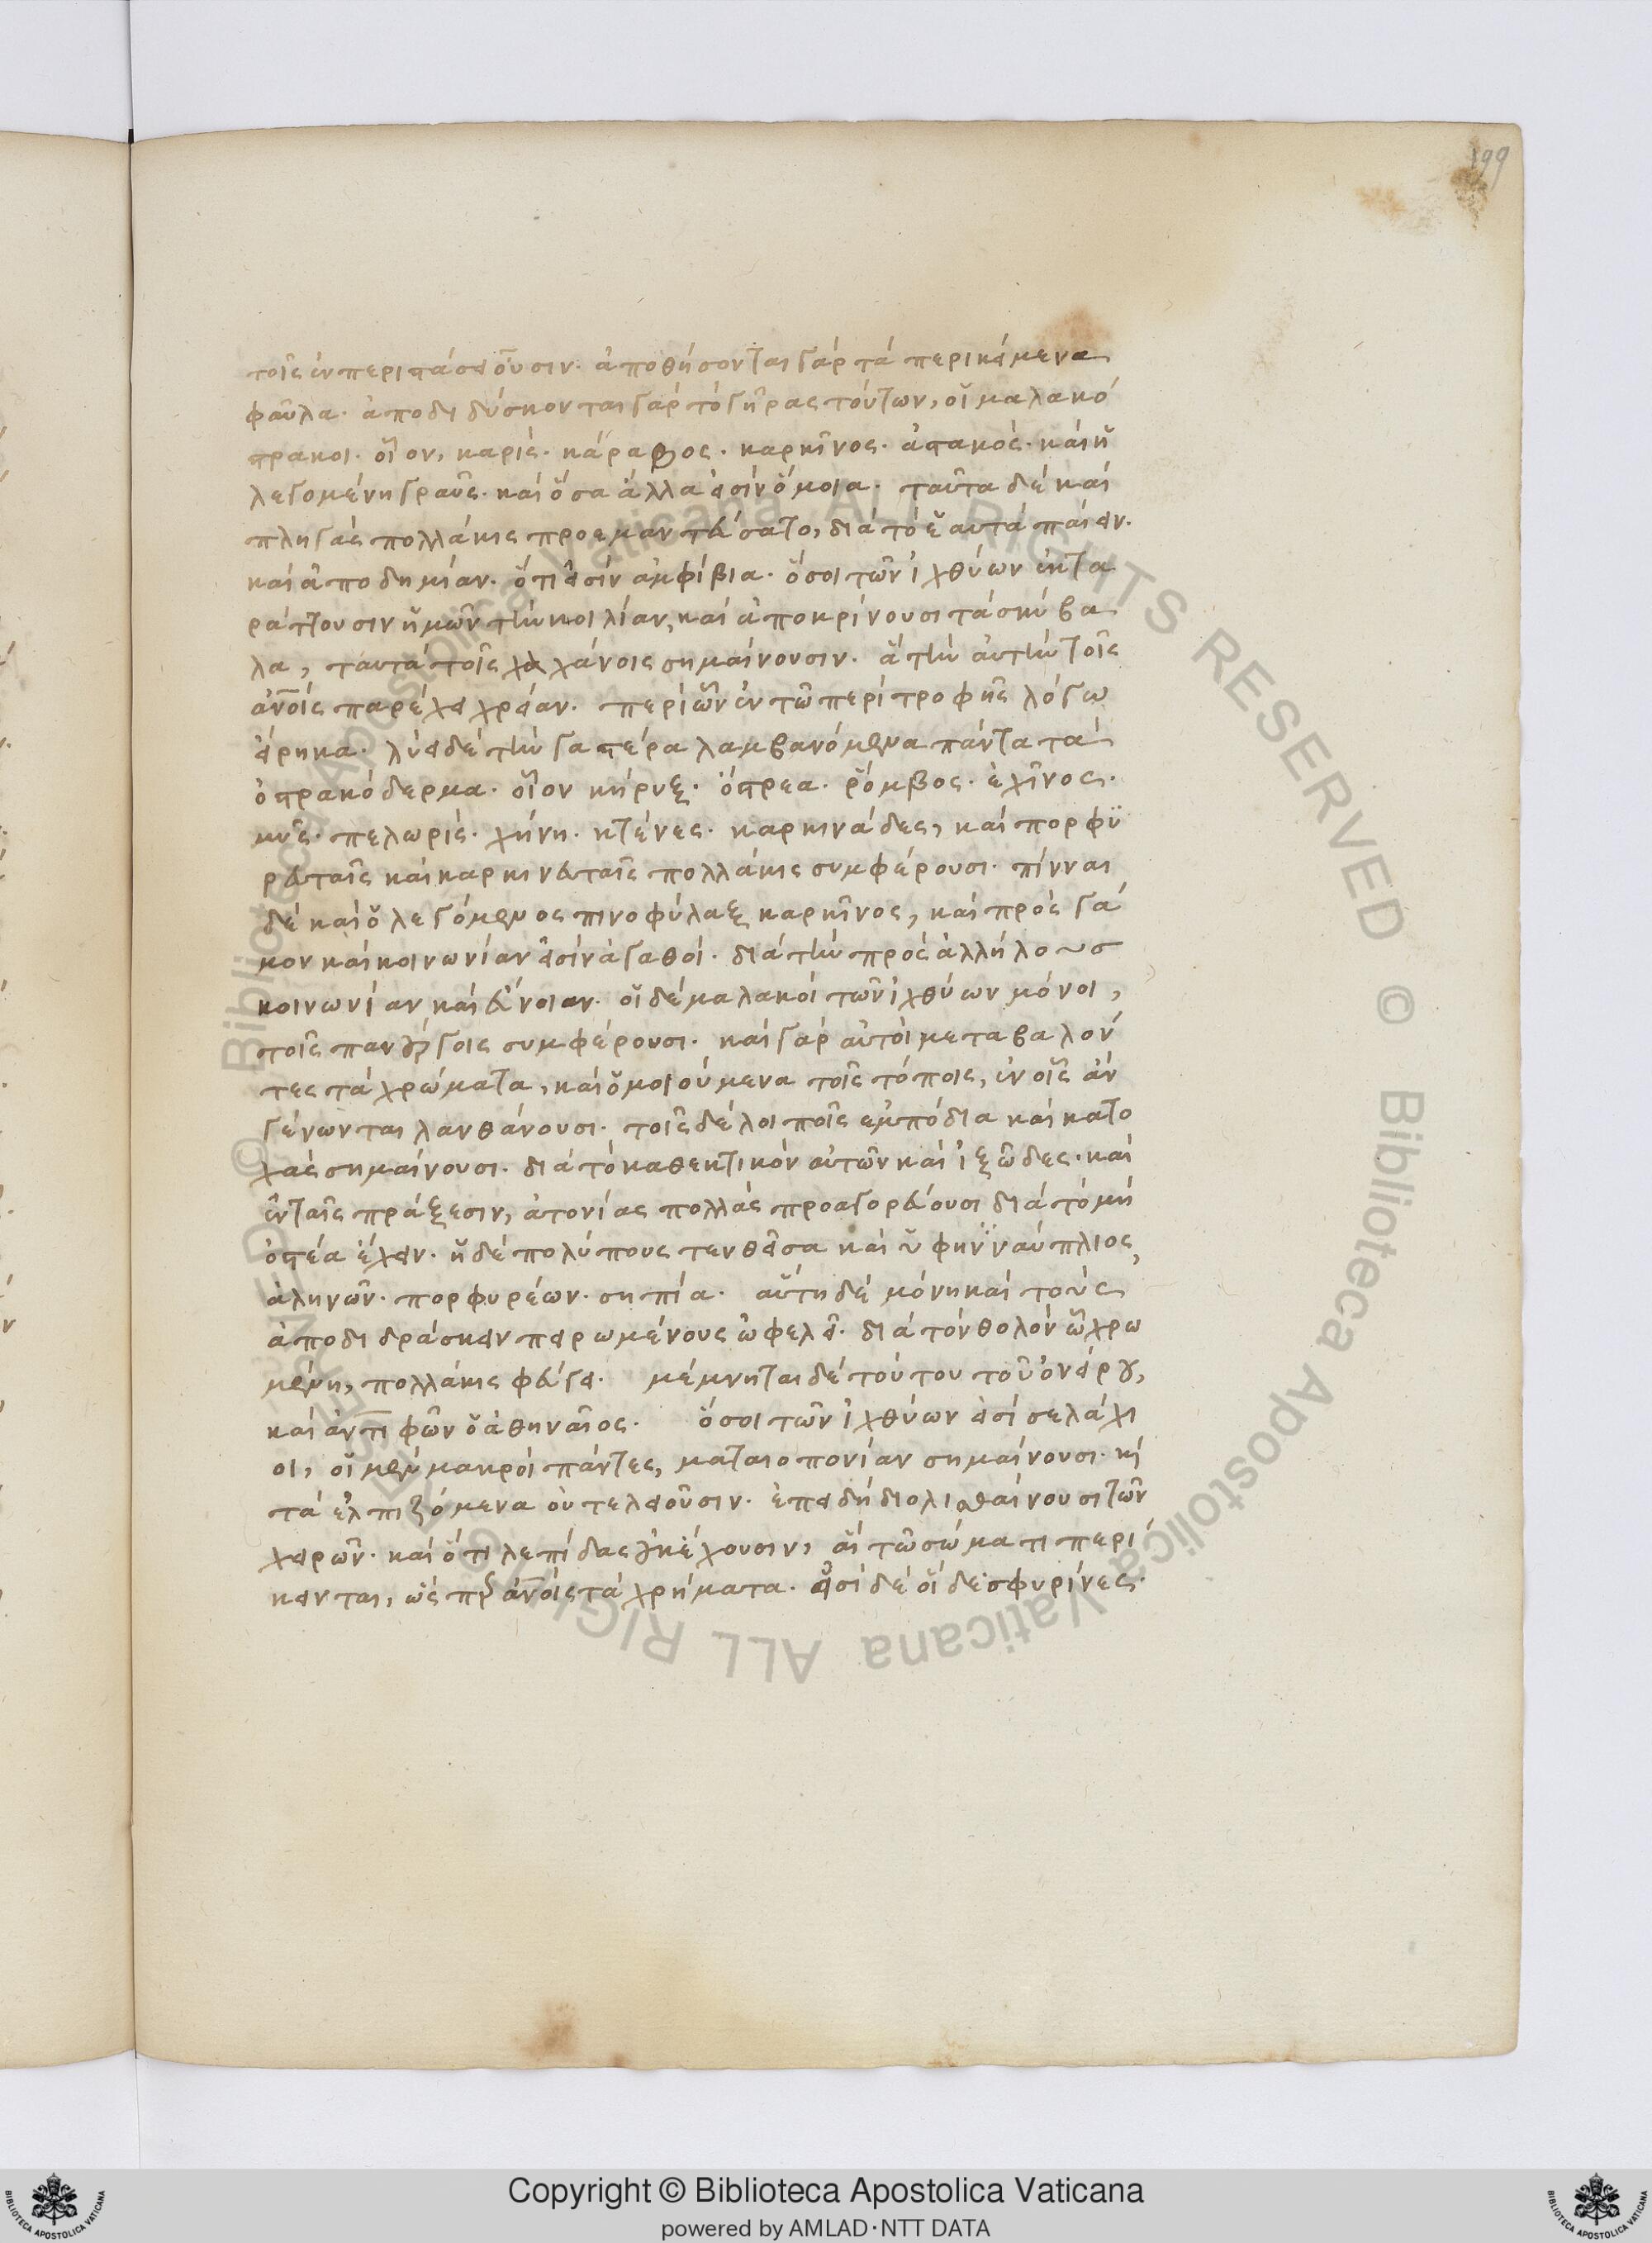 199
τοῖς ἐν περιστάσει οὖσιν. ἀποθήσονται γάρ τά περικείμενα
φαῦλα. ἀποδιδύσκονται γάρ τό γῆρας τούτων, οἵ μαλακό
στρακοι. οἷον, καρίς. κάραβος. καρκῖνος. ἀστακός. καί ἡ
λεγομένη γραῦς. καί ὅσα ἄλλα εἰσίν ὅμοια. ταῦτα δέ καί
πληγάς πολλάκις προεμαντεύσατο, διά τό ἑαυτά παίειν.
καί ἀποδημίαν. ὅτι εἰσίν ἀμφίβια. ὅσοι τῶν ἰχθύων ἐκτα
ράττουσιν ἡμῶν τήν κοιλίαν, καί ἀποκρίνουσι τά σκύβα
λα, ταυτά τοῖς λαχάνοις σημαίνουσιν. ἅ τήν αὐτήν τοῖς
ἀνοίς παρέχει χρείαν. περί ὧν ἐν τῶ περί τροφῆς λόγω
εἴρηκα. λύει δέ τήν γαστέρα λαμβανόμενα πάντα τά
ὀστρακόδερμα. οἷον κήρυξ. ὄστρεα. ῥόμβος. ἐχῖνος.
μῦς. πελωρίς. χήνη. κτένες. καρκινάδες, καί πορφϋ
ρευταῖς καί καρκινευταῖς πολλάκις συμφέρουσι. πίνναι
δέ καί ὁ λεγόμενος πινοφύλαξ καρκῖνος, καί πρός γά
μον καί κοινωνίαν εἰσίν ἀγαθοί. διά τήν πρός ἀλλήλους
κοινωνίαν καί εὔνοιαν. οἵ δέ μαλακοί τῶν ἰχθύων μόνοι,
τοῖς πανούργοις συμφέρουσι. καί γάρ αὐτοί μεταβαλόν
τες τά χρώματα, καί ὁμοιούμενα τοῖς τόποις, ἐν οἷς ἄν
γένωνται λανθάνουσι. τοῖς δέ λοιποῖς ἐμπόδια καί κατο
χάς σημαίνουσι. διά τό καθεκτικόν αὐτῶν καί ἰξῶδες. καί
ἐν ταῖς πράξεσιν, ἀτονίας πολλάς προαγορεύουσι διά τό μή
ὀστέα ἔχειν. ἡ δέ πολύπους τευθεῖσα καί ὑφην ϊναύπλιος,
ἀληνῶν. πορφυρέων. σηπία. αὕτη δέ μόνη καί τούς
ἀποδιδράσκειν πειρωμένους ὠφελεῖ. διά τόν θολόν ὧ χρω
μένη, πολλάκις φεύγει. μέμνηται δέ τούτου τοῦ ὀνείρου,
καί ἀντιφῶν ὁ ἀθηναῖος. ὅσοι τῶν ἰχθύων εἰσί σελάχι
οι, οἵ μέν μακροί πάντες, ματαιοπονίαν σημαίνουσι. κ
τά ἐλπιζόμενα οὐ τελειοῦσιν. ἐπειδή διολισθαίνουσι τῶν
χειρῶν. καί ὅτι λεπίδας οὐκ ἔχουσιν, αἵ τῶ σώματι περί
κεινται, ὡς περ ἀνοίς τά χρήματα. εἰσί δέ οἵδε σφυρίνες.
Copyright © Biblioteca Apostolica Vaticana
powered by AMLAD·NTT DATA